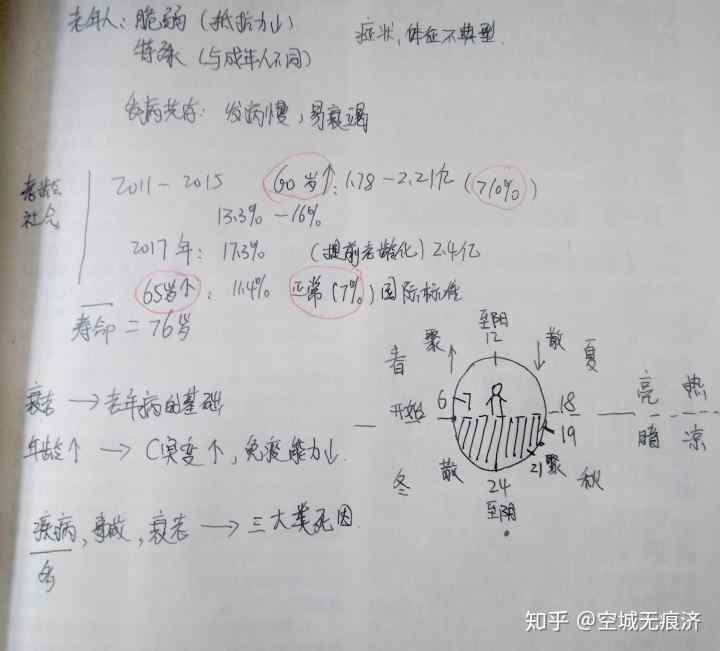 老年人：脆弱（抵抗力↓）
症状，体征不典型
特殊（与成年人不同）
多病共存：发病慢，易衰竭
老龄社会
2011-2015 60岁↑：1.78-2.21亿（710%）
13.3%-16%
2017年：17.3%（提前老龄化）2.4亿
65岁↑：11.4% 正常（7%）国际标准
寿命=76岁
衰老→老年病的基础
年龄↑→C突变↑，免疫能力↓
疾病，事故，衰老→三大类死因
多
至阳
12
春 聚↑ ↓散 夏
开始 6 7 18 亮 热
19 暗 凉
冬 散 21 聚 秋
24
至阴
知乎 @空城无痕济